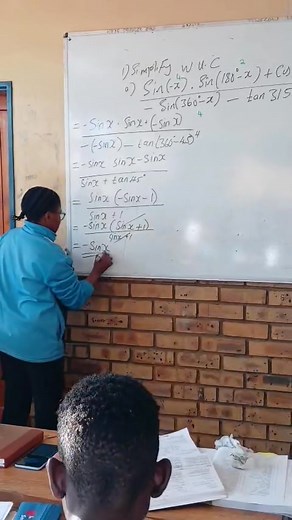 1) Simplify W U C
a) Sin(-x) . Sin(180°-x) + Cos
- Sin(360°-x) - tan 315
= -Sinx . Sinx + (-Sinx)
-(-Sinx) - tan(360°-45°)
= -Sinx Sinx - Sinx
Sinx + tan45°
= Sinx (-Sinx-1)
Sinx + 1
= -Sinx (Sinx+1)
Sinx+1
= -Sinx